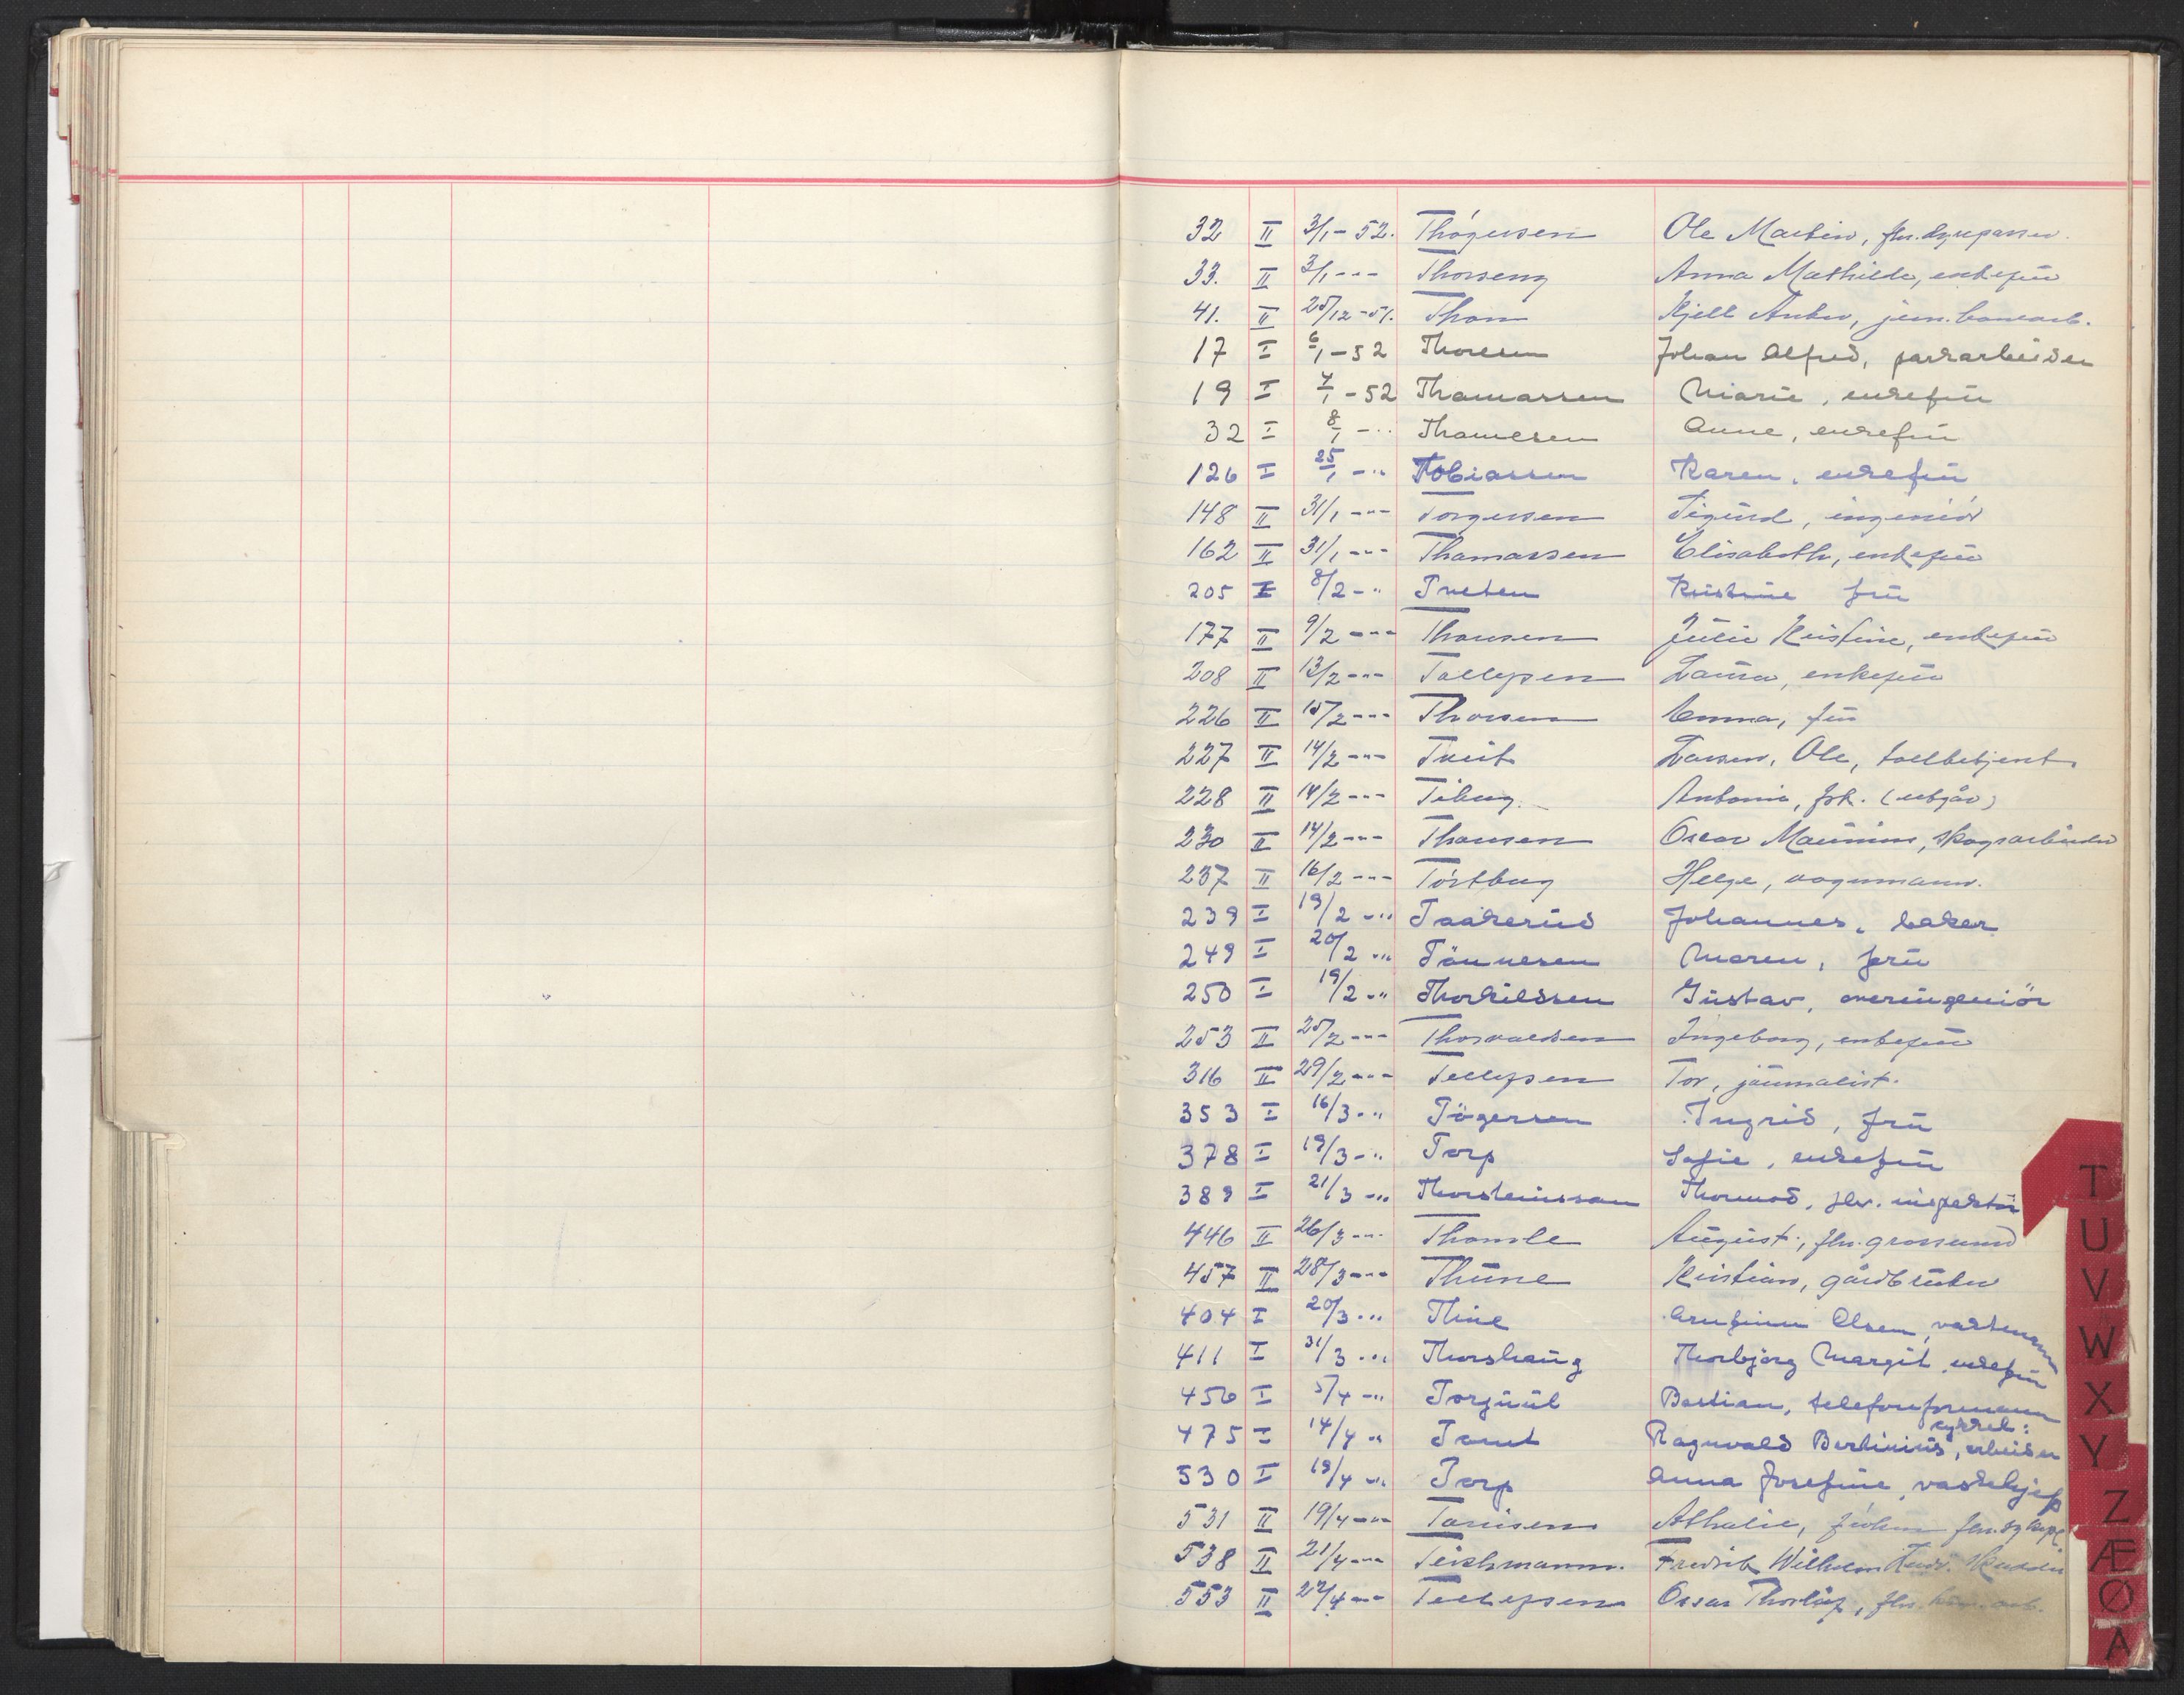 32 II 3/1 - 52. Thógersen Ole Martin, fhv.
33. II 3/1 - " - Thorseng Anna Mathilde, enkefrü
41. II 25/12 - 51. Thon Kjell Anker, jern.banearb.
17 I 6/1 - 52 Thoresen Johan Alfred, parkarbeider
19 I 7/1 - 52 Thomassen Marie, enkefrü
32 I 8/1 - " Thomesen Anne, enkefrü
126 I 25/1 - " Tobiassen Karen, enkefrü
148 II 31/1 - " - Torgersen Sigurd, ingeniór
162 II 31/1 - " - Thomassen Elisabeth, enkefrü
205 I 8/2 - " Tveten Kristine frü
177 II 9/2 - " - Thorsen Julie Kristine, enkefrü
208 II 13/2 - " - Tollefsen Laura, enkefrü
226 II 15/2 - " - Thorsen Emma, frü
227 II 14/2 - " - Tveit Larsen, Ole, tollbetjent.
228 II 14/2 - " - Antonie, frk. (utgår)
230 II 14/2 - " - Thorsen Oscar skogsarbeider
237 II 16/2 - " - Tórtberg Helge, vognmann.
239 I 19/2 - " Taakerüd Johannes, baker
249 I 20/2 " Tönnesen Maren, frü
250 I 19/2 - " Thorkildsen Güstav, overingeniör
253 II 25/2 - " - Thorvaldsen Ingeborg, enkefrü
316 II 29/2 - " - Tellefsen Tor, joürnalist.
353 I 16/3 - " Tögersen Ingrid, frü
378 I 19/3 - " Torp Sofie, enkefrü
389 I 21/3 - " Thorsteinsson Thormod, fhv. inspektör
446 II 26/3 - " - Thomle Aügüst, fhv. grosserer
457 II 28/3 - " - Thüne Kristian, gårdbrüker
404 I 20/3 - " Thine Arnfinn Olsen, vaktmann
411 I 31/3 - " Thorshaüg Thorbjørg Margit, enkefrü
456 I 5/4 - " Torjüül Bastian, telefonformann
475 I 14/4 " Tomt Ragnvald Bertiniüs, sykkel: arbeider
530 I 19/4 - " Torp Anna Josefine, vaskehjelp
531 II 19/4 - " - Athalie, fróken fhv.
538 II 21/4 - " - Teichmann. Fredrik Wilhelm
553 II 22/4 - " - Tellefsen Oscar Thorleif, fhv.
T
U
V
W
X
Y
Z
Æ
Ø
A